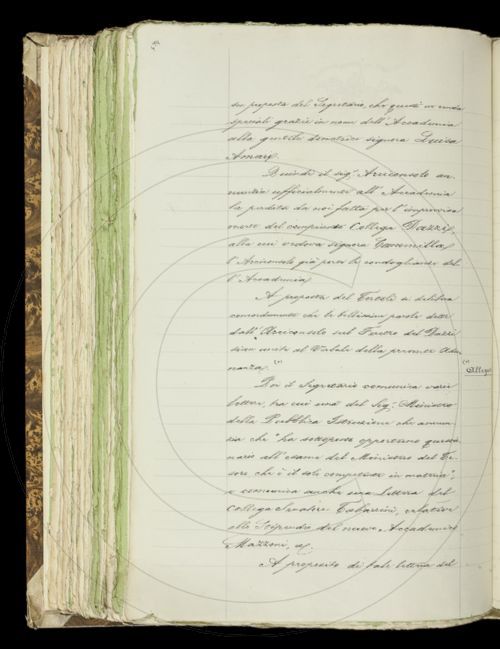 su proposta del Segretario, che questi in renda
speciali grazie in nome dell'Accademia
alla gentile donatrice signora Luisa
Amari.
Quindi il sig.r Arciconsolo an-
nunzia ufficialmente all'Accademia
la perdita da noi fatta per l'improvvisa
morte del compianto Collega Dazzi,
alla cui vedova signora Cammilla
l'Arciconsolo già porse le condoglianze del-
l'Accademia.
A proposta del Tortoli si delibera
concordemente che le bellissime parole dette
dall'Arciconsolo sul Feretro del Dazzi
sian unite al Verbale della presente Adu-
nanza. (1)
(1) Allegato
Poi il Segretario comunica varie
lettere, tra cui una del Sig.r Ministro
della Pubblica Istruzione che annun-
zia che "ha sottoposto opportuno questio-
nario all'esame del Ministero del Te-
soro che è il solo competente in materia",
e comunica anche una lettera del
Collega Senatore Tabarrini, relativa
allo Stipendio del nuovo Accademico
Mazzoni,
A proposito di tale lettera del